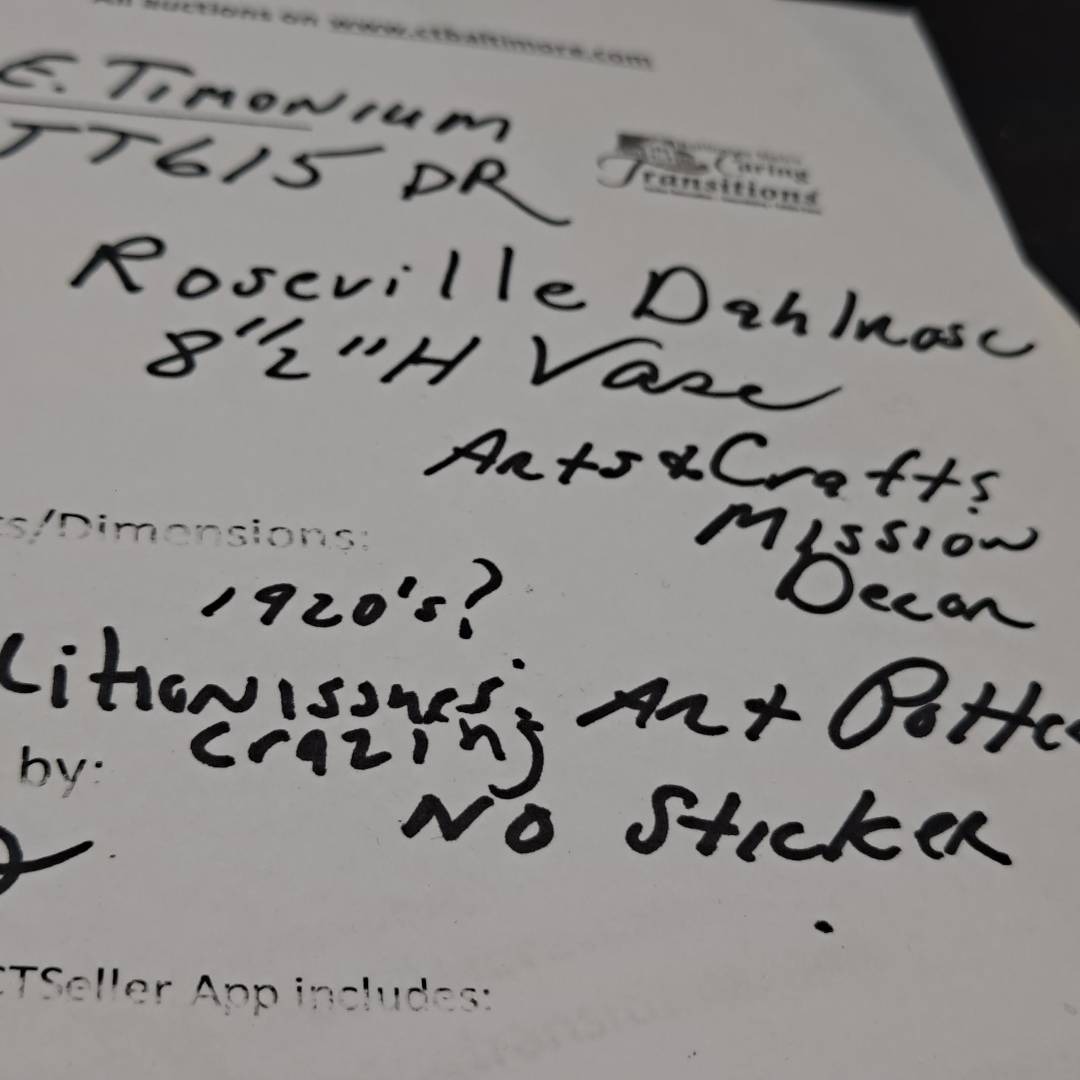 auctions on www.ctbaltimore.com
E. TIMONIUM
TT615 DR
Caring
Transitions
Roseville Dahlrose
8 1/2" H Vase
Arts & Crafts
Mission
Decor
s/Dimensions:
1920's?
ditionissues;
Crazing
Art Potte
by:
NO Sticker
CTSeller App includes: